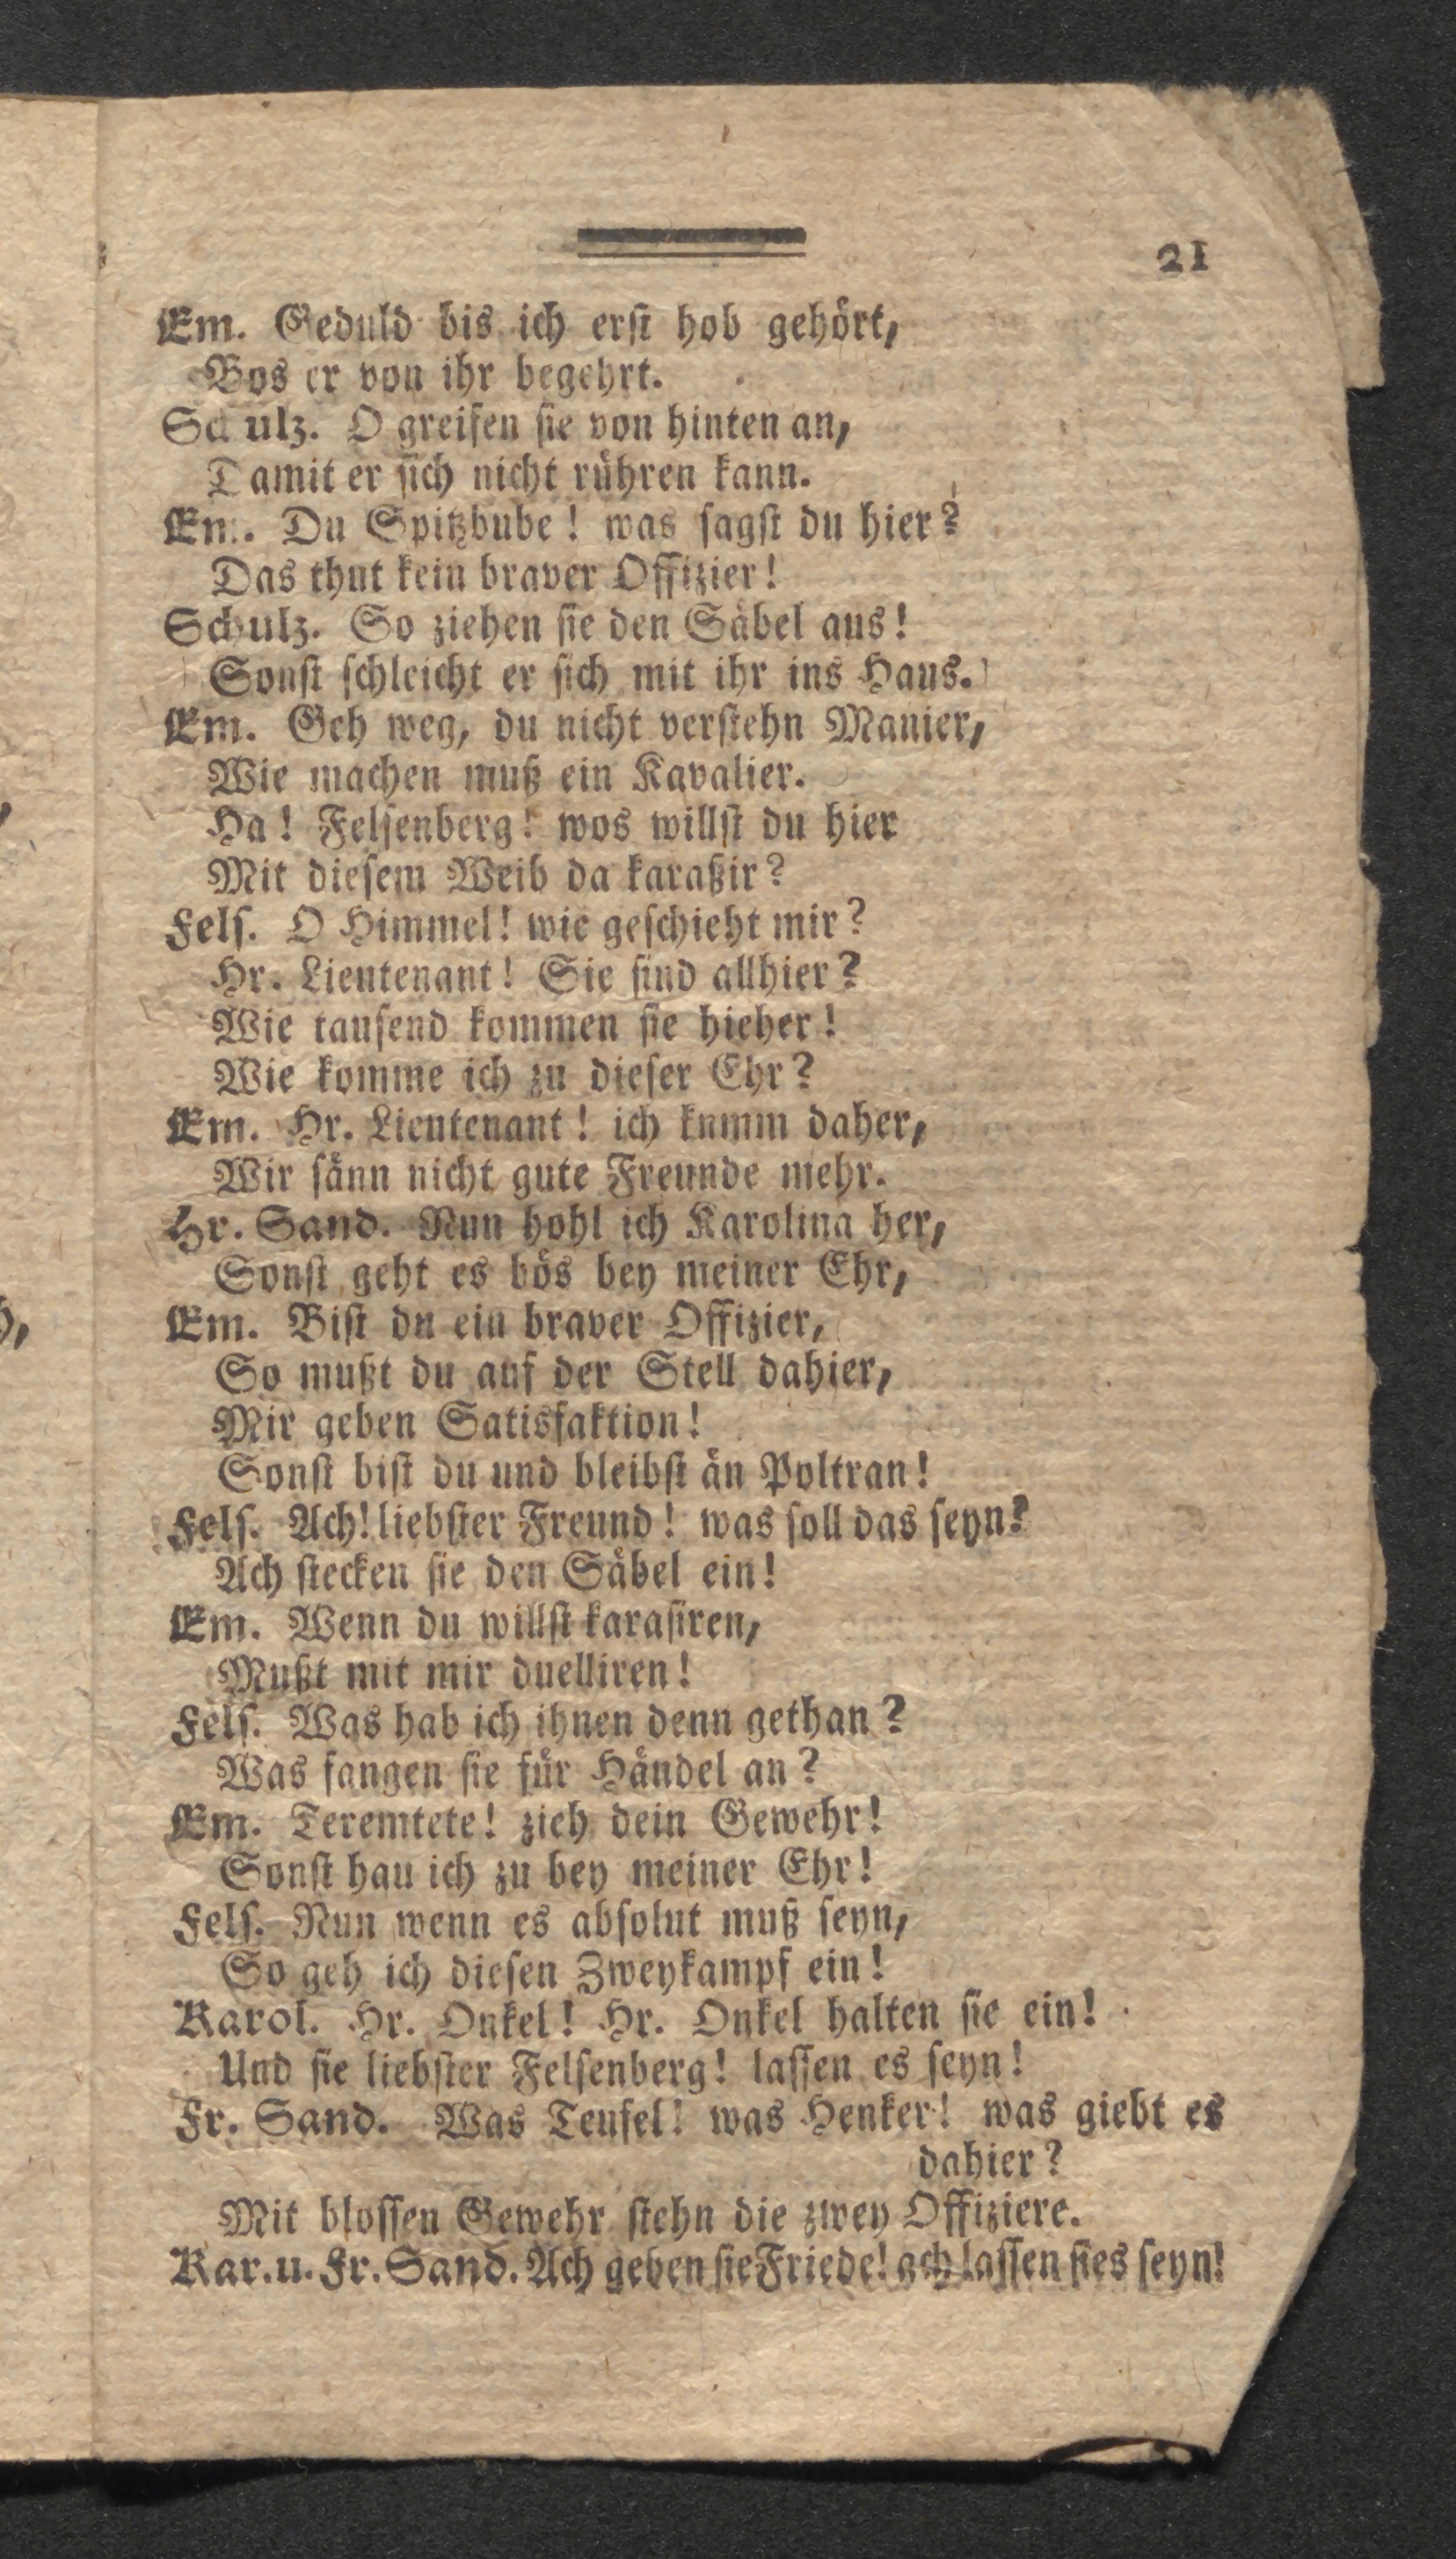 21
Em. Geduld bis ich erst hob gehört,
Wos er von ihr begehrt.
Schulz. O greifen sie von hinten an,
Damit er sich nicht rühren kann.
Em. Du Spitzbube! was sagst du hier?
Das thut kein braver Offizier!
Schulz. So ziehen sie den Säbel aus!
Sonst schleicht er sich mit ihr ins Haus.
Em. Geh weg, du nicht verstehn Manier,
Wie machen muß ein Kavalier.
Ha! Felsenberg! wos willst du hier
Mit diesem Weib da karaßir?
Fels. O Himmel! wie geschieht mir?
Hr. Lieutenant! Sie sind allhier?
Wie tausend kommen sie hieher!
Wie komme ich zu dieser Ehr?
Em. Hr. Lieutenant! ich kumm daher,
Wir sänn nicht gute Freunde mehr.
Hr. Sand. Nun hohl ich Karolina her,
Sonst geht es bös bey meiner Ehr,
Em. Bist du ein braver Offizier,
So mußt du auf der Stell dahier,
Mir geben Satisfaktion!
Sonst bist du und bleibst än Poltran!
Fels. Ach! liebster Freund! was soll das seyn?
Ach stecken sie den Säbel ein!
Em. Wenn du willst karasiren,
Mußt mit mir duelliren!
Fels. Was hab ich ihnen denn gethan?
Was fangen sie für Händel an?
Em. Teremtete! zieh dein Gewehr!
Sonst hau ich zu bey meiner Ehr!
Fels. Nun wenn es absolut muß seyn,
So geh ich diesen Zweykampf ein!
Karol. Hr. Onkel! Hr. Onkel halten sie ein!
Und sie liebster Felsenberg! lassen es seyn!
Fr. Sand. Was Teufel! was Henker! was giebt es
dahier?
Mit blossen Gewehr stehn die zwey Offiziere.
Kar. u. Fr. Sand. Ach geben sie Friede! ach lassen sies seyn!